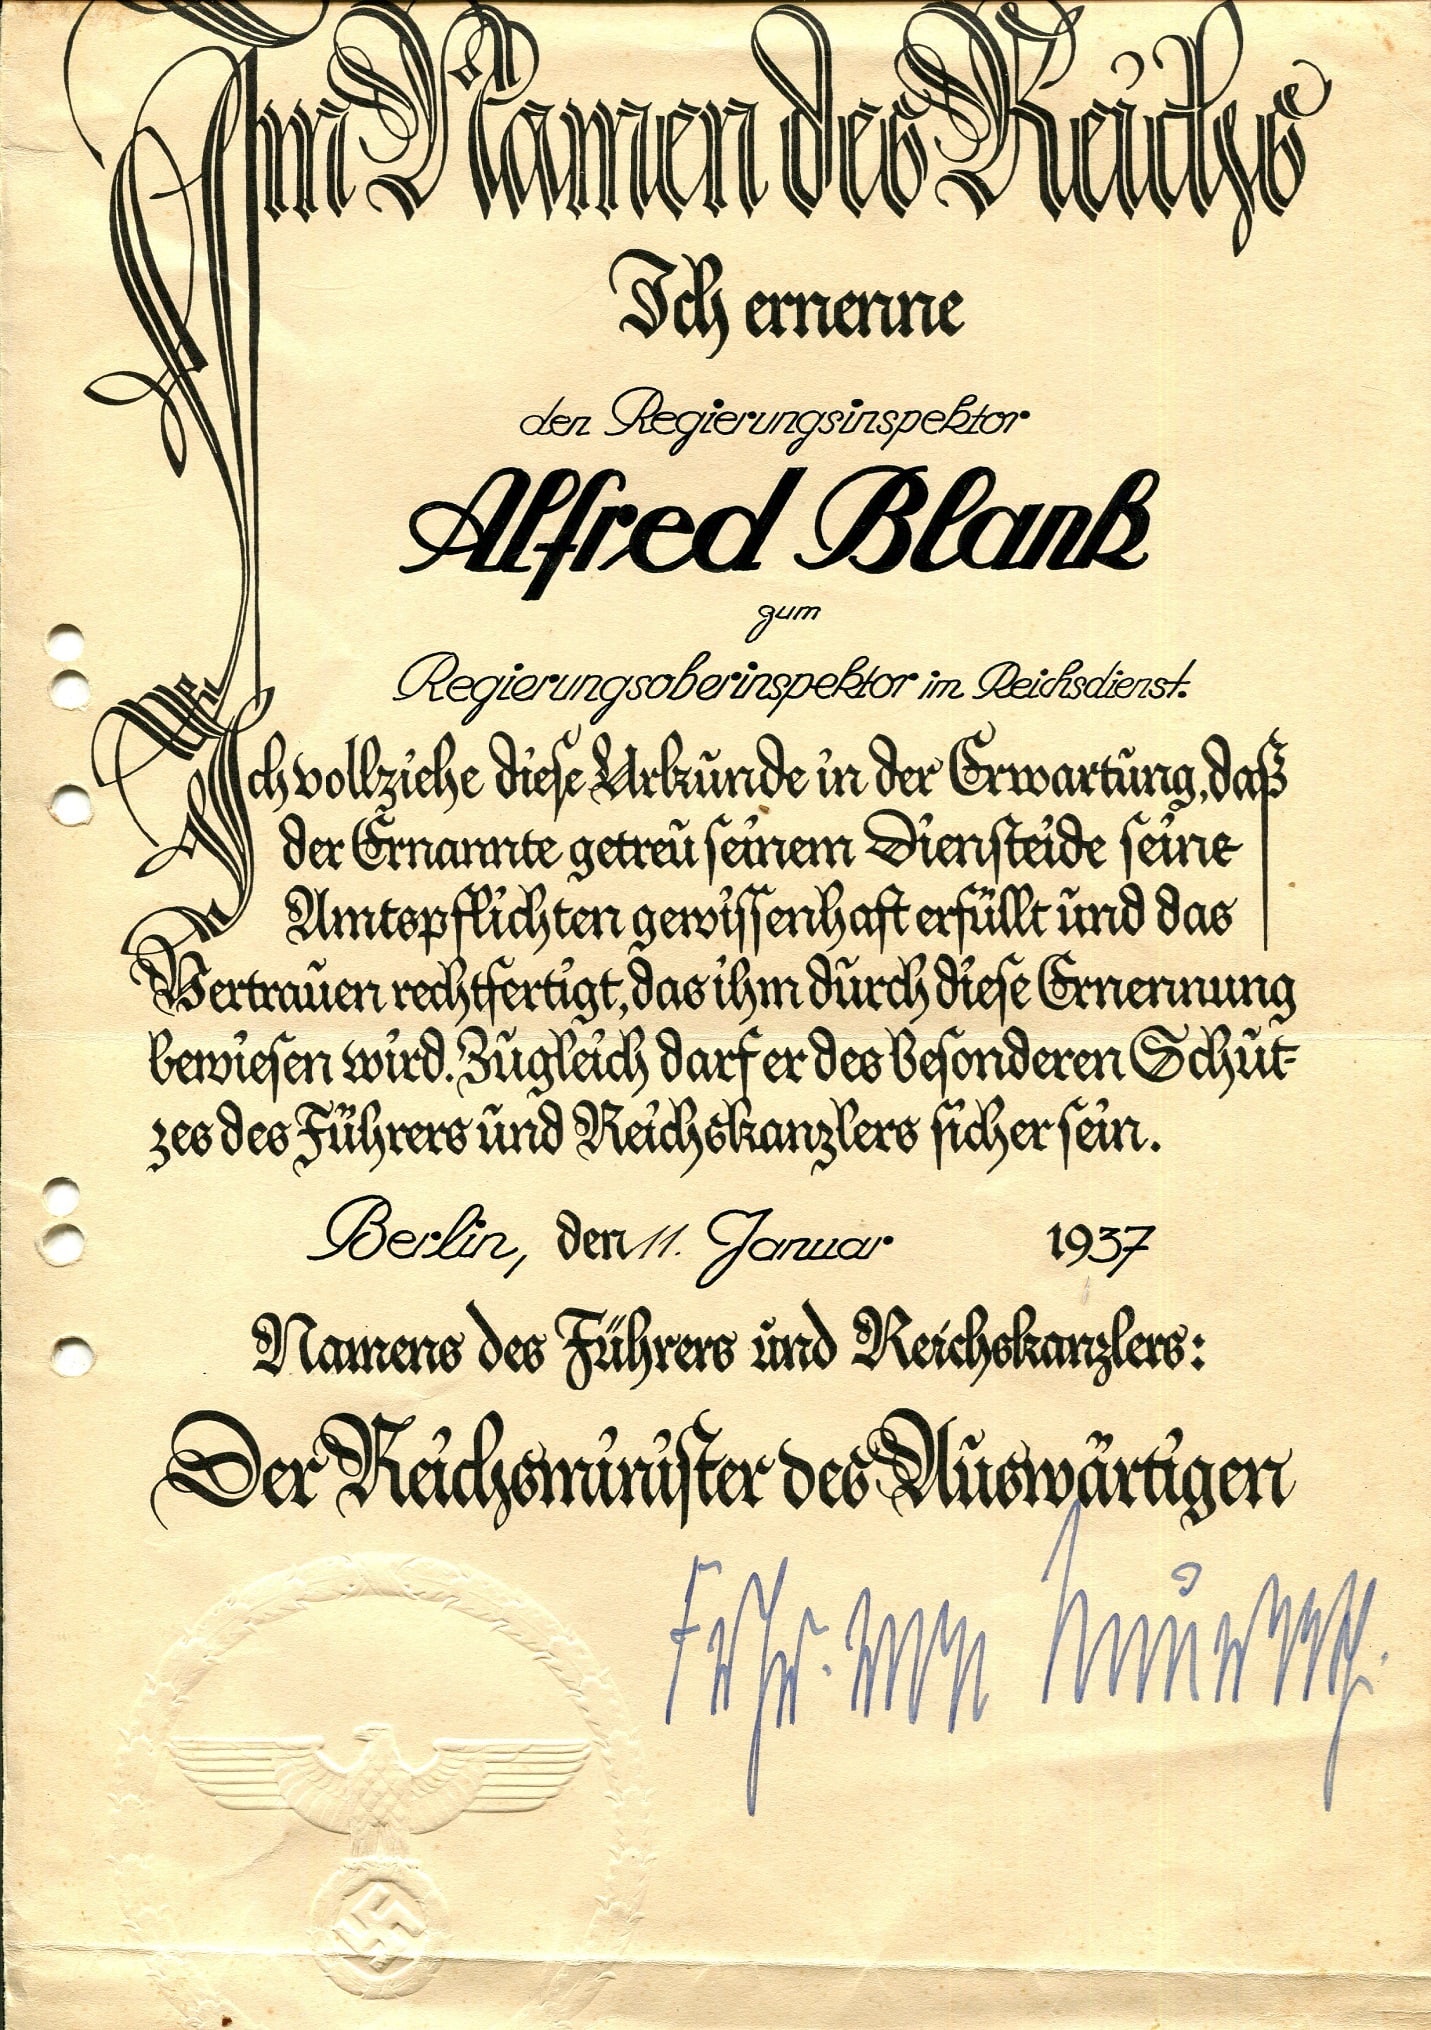 Im Namen des Reichs
Ich ernenne
den Regierungsinspektor
Alfred Blank
zum
Regierungsoberinspektor im Reichsdienst.
Ich vollziehe diese Urkunde in der Erwartung, daß
der Ernannte getreu seinem Diensteide seine
Amtspflichten gewissenhaft erfüllt und das
Vertrauen rechtfertigt, das ihm durch diese Ernennung
bewiesen wird. Zugleich darf er des besonderen Schut-
zes des Führers und Reichskanzlers sicher sein.
Berlin, den 11. Januar 1937
Namens des Führers und Reichskanzlers:
Der Reichsminister des Auswärtigen
Frhr. von Neurath.